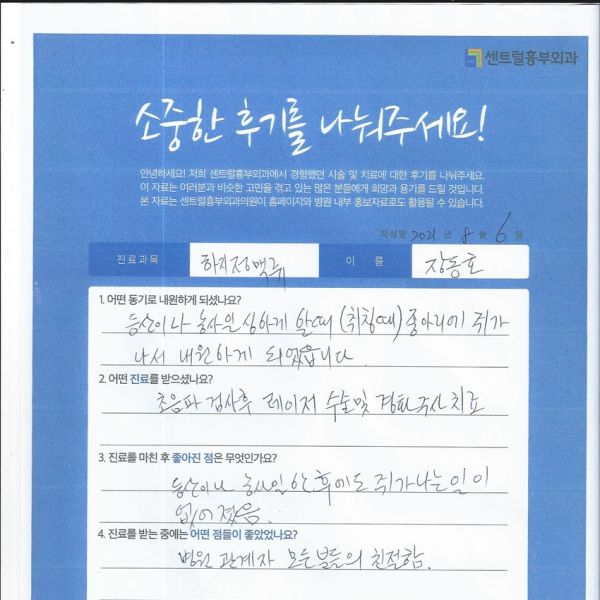 센트럴흉부외과
소중한 후기를 나눠주세요!
안녕하세요! 저희 센트럴흉부외과에서 경험했던 시술 및 치료에 대한 후기를 나눠주세요.
이 자료는 여러분과 비슷한 고민을 겪고 있는 많은 분들에게 희망과 용기를 드릴 것입니다.
본 자료는 센트럴흉부외과의원이 홈페이지와 병원 내부 홍보자료로도 활용될 수 있습니다.
작성일 2021 년 8 월 6 일
진료과목 하지정맥류 이 름 장동호
1. 어떤 동기로 내원하게 되셨나요?
등산이나 농사일 심하게 할때 (취침때) 종아리에 쥐가
나서 내원하게 되었읍니다.
2. 어떤 진료를 받으셨나요?
초음파 검사후 레이저 수술및 경화주사 치료
3. 진료를 마친 후 좋아진 점은 무엇인가요?
등산이나 농사일 한후에도 쥐가나는일이
없어졌음.
4. 진료를 받는 중에는 어떤 점들이 좋았었나요?
병원 관계자 모든분들의 친절함.